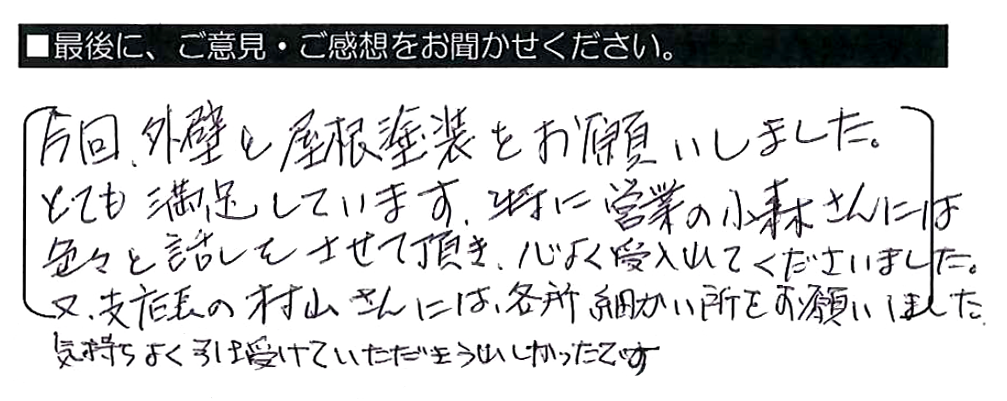 ■最後に、ご意見・ご感想をお聞かせください。
今回、外壁と屋根塗装をお願いしました。
とても満足しています。特に営業の小森さんには
色々と話しをさせて頂き、心よく受入れてくださいました。
又、支店長の村山さんには、各所細かい所をお願いしました
気持ちよく引け受けていただきうれしかったです